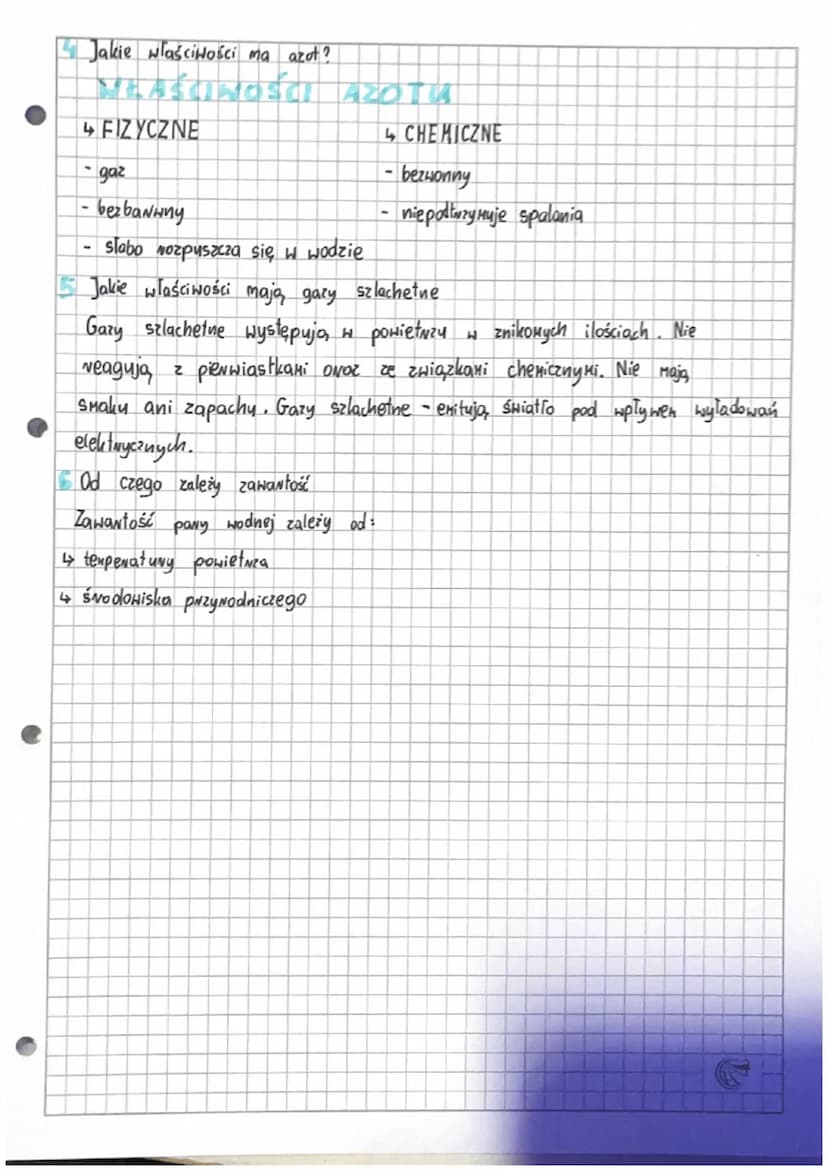 4 Jakie właściwości ma azot?
WŁAŚCIWOŚCI AZOTU
↳ FIZYCZNE ↳ CHEMICZNE
- gaz - bezwonny
- bezbarwny - niepodtrzymuje spalania
- słabo rozpuszcza się w wodzie
5 Jakie właściwości mają gazy szlachetne
Gazy szlachetne występują w powietrzu w znikomych ilościach. Nie
reagują z pierwiastkami oraz ze związkami chemicznymi. Nie mają
smaku ani zapachu. Gazy szlachetne - emitują światło pod wpływem wyładowań
elektrycznych.
6 Od czego zależy zawartość
Zawartość pary wodnej zależy od:
↳ temperatury powietrza
↳ środowiska przyrodniczego